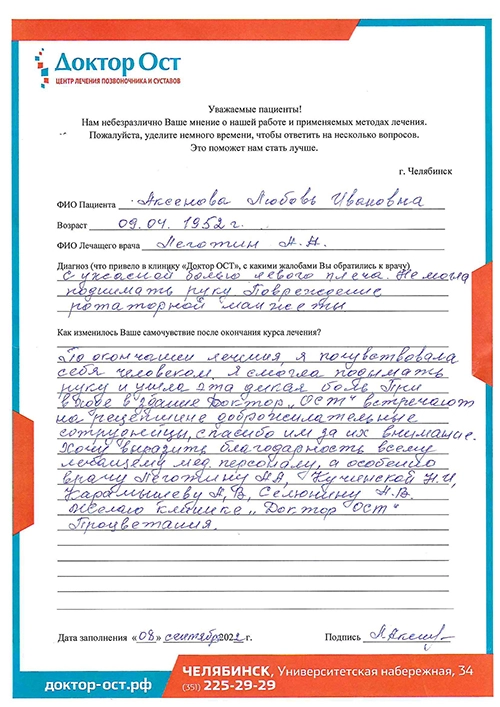 Доктор Ост
ЦЕНТР ЛЕЧЕНИЯ ПОЗВОНОЧНИКА И СУСТАВОВ
Уважаемые пациенты!
Нам небезразлично Ваше мнение о нашей работе и применяемых методах лечения.
Пожалуйста, уделите немного времени, чтобы ответить на несколько вопросов.
Это поможет нам стать лучше.
г. Челябинск
ФИО Пациента Аксенова Любовь Ивановна
Возраст 09.04. 1952 г.
ФИО Лечащего врача Леготин А.А.
Диагноз (что привело в клинику «Доктор ОСТ», с какими жалобами Вы обратились к врачу)
С ужасной болью левого плеча. Не могла
поднимать руку. Повреждение
ротаторной манжеты
Как изменилось Ваше самочувствие после окончания курса лечения?
По окончании лечения, я почувствовала
себя человеком. Я смогла поднимать
руку и ушла эта дикая боль. При
входе в здание Доктор "ОСТ" встречают
на рецепшине доброжилательные
сотрудницы, спасибо им за их внимание.
Хочу выразить благодарность всему
лечащему мед. персоналу, а особенно
врачу Леготину А.А, Кученской Н.И,
Карамышеву А,В, Селюнину А.В.
Желаю клинике "Доктор ОСТ"
Процветания.
Дата заполнения «08» сентябр 2022 г. Подпись
доктор-ост.рф
ЧЕЛЯБИНСК, Университетская набережная, 34
(351) 225-29-29